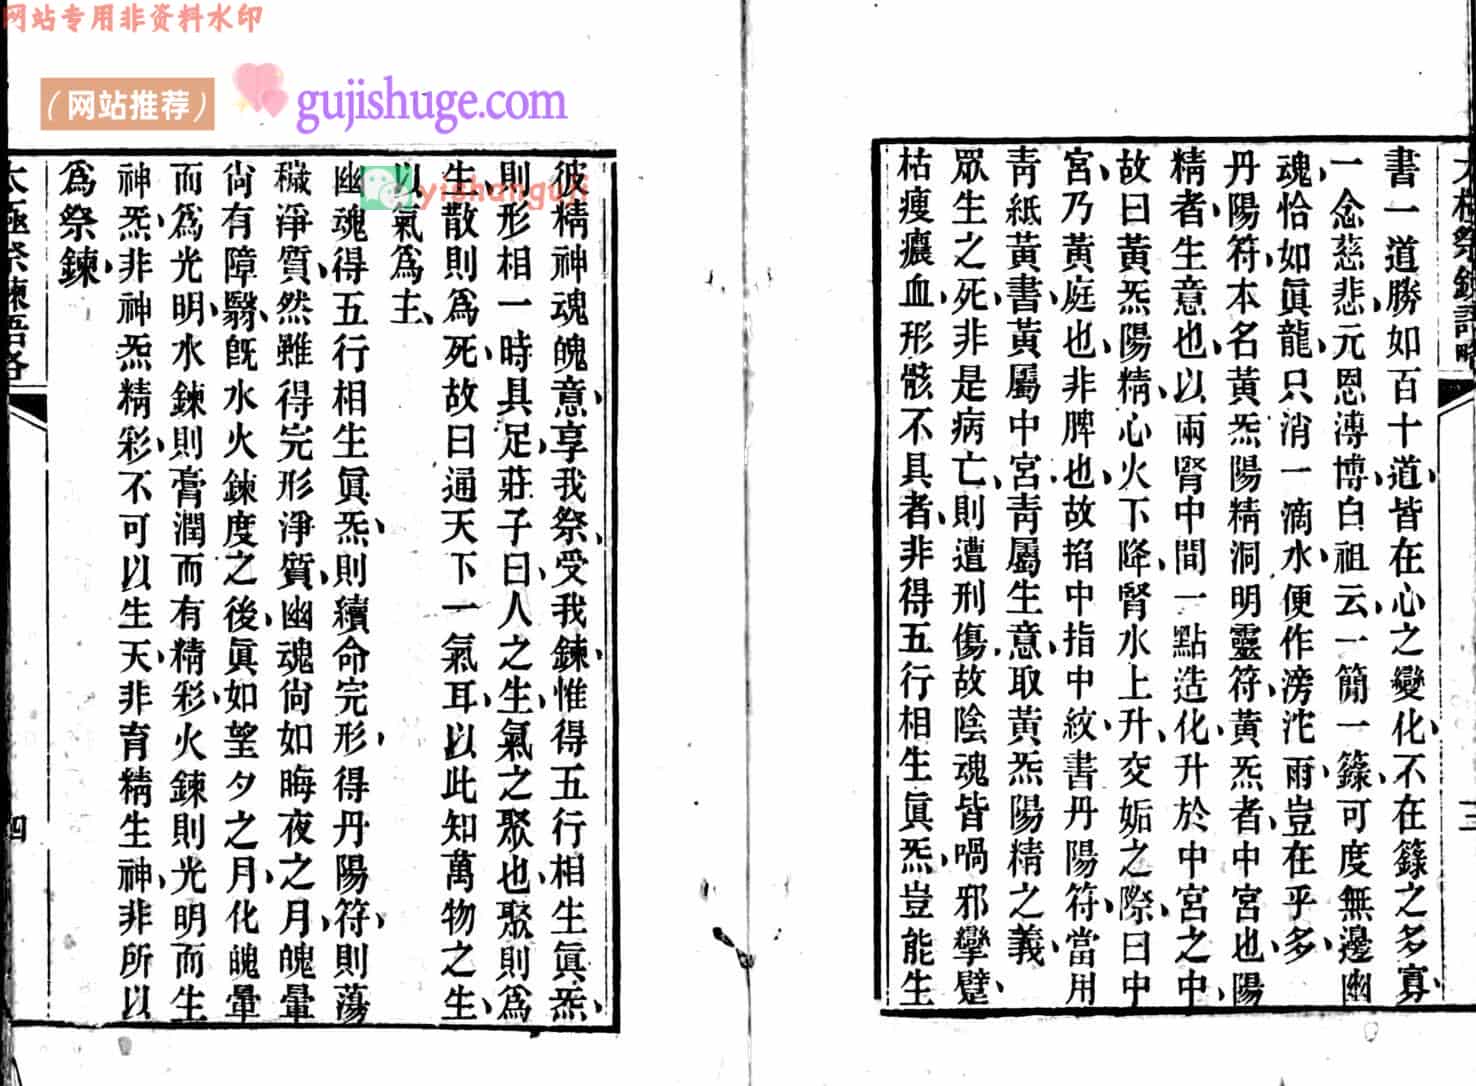 网站专用非资料水印
（网站推荐）
gujishuge.com
yishanguji
太極祭鍊語略
三
書一道、勝如百十道、皆在心之變化、不在籙之多寡、
一念慈悲、元恩溥博、白祖云、一簡一籙、可度無邊幽
魂、恰如眞龍、只消一滴水、便作滂沱雨、豈在乎多、
丹陽符本名黃炁陽精洞明靈符、黃炁者、中宮也、陽
精者、生意也、以兩腎中間一點造化、升於中宮之中、
故曰黃炁陽精、心火下降、腎水上升、交姤之際、曰中
宮、乃黃庭也、非脾也、故掐中指中紋、書丹陽符、當用
靑紙黃書、黃屬中宮、靑屬生意、取黃炁陽精之義、
眾生之死、非是病亡、則遭刑傷、故陰魂皆喎邪攣躄、
枯瘦癏血、形骸不具者、非得五行相生眞炁、豈能生
彼精神魂魄意、享我祭、受我鍊、惟得五行相生眞炁、
則形相一時具足、莊子曰、人之生、氣之聚也、聚則爲
生、散則爲死、故曰通天下一氣耳、以此知萬物之生、
以氣爲主、
幽魂得五行相生眞炁、則續命完形、得丹陽符、則蕩
穢淨質、然雖得完形淨質、幽魂尙如晦夜之月、魄暈
尙有障翳、旣水火鍊度之後、眞如望夕之月、化魄暈
而爲光明、水鍊則膏潤而有精彩、火鍊則光明而生
神炁、非神炁精彩、不可以生天、非育精生神、非所以
爲祭鍊、
太極祭鍊語略
四